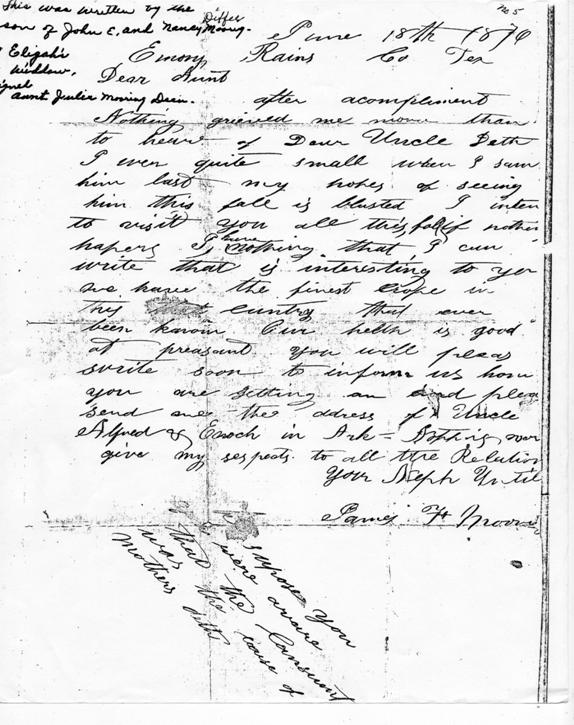 This was written by the
son of John E. and Nancy Differ Mooring
Elizah's
Widdow,
aunt Julia Mooring Dein.
No 5
June 18th 1876
Emory Rains Co Tex
Dear Aunt
after acompliment
Nothing grieved me more than
to hear of Dear Uncle Deth
I was quite small when I saw
him last my hopes of seeing
him this fall is blusted I inten
to visit you all this fall if nothin
hapens I have nothing that I can
write that is interesting to you
we have the finest crops in
this cuntry that ever
been known Our helth is good
at preasant you will pleas
write soon to inform us how
you are getting an and pleas
send me the adress of Uncle
Alfred & Enoch in Ark - Asking your
give my respects to all the Relation
Your Neph Until
James F Moorin
I suppose you
were aware
that the Consumt
was the cause of
mothers deth